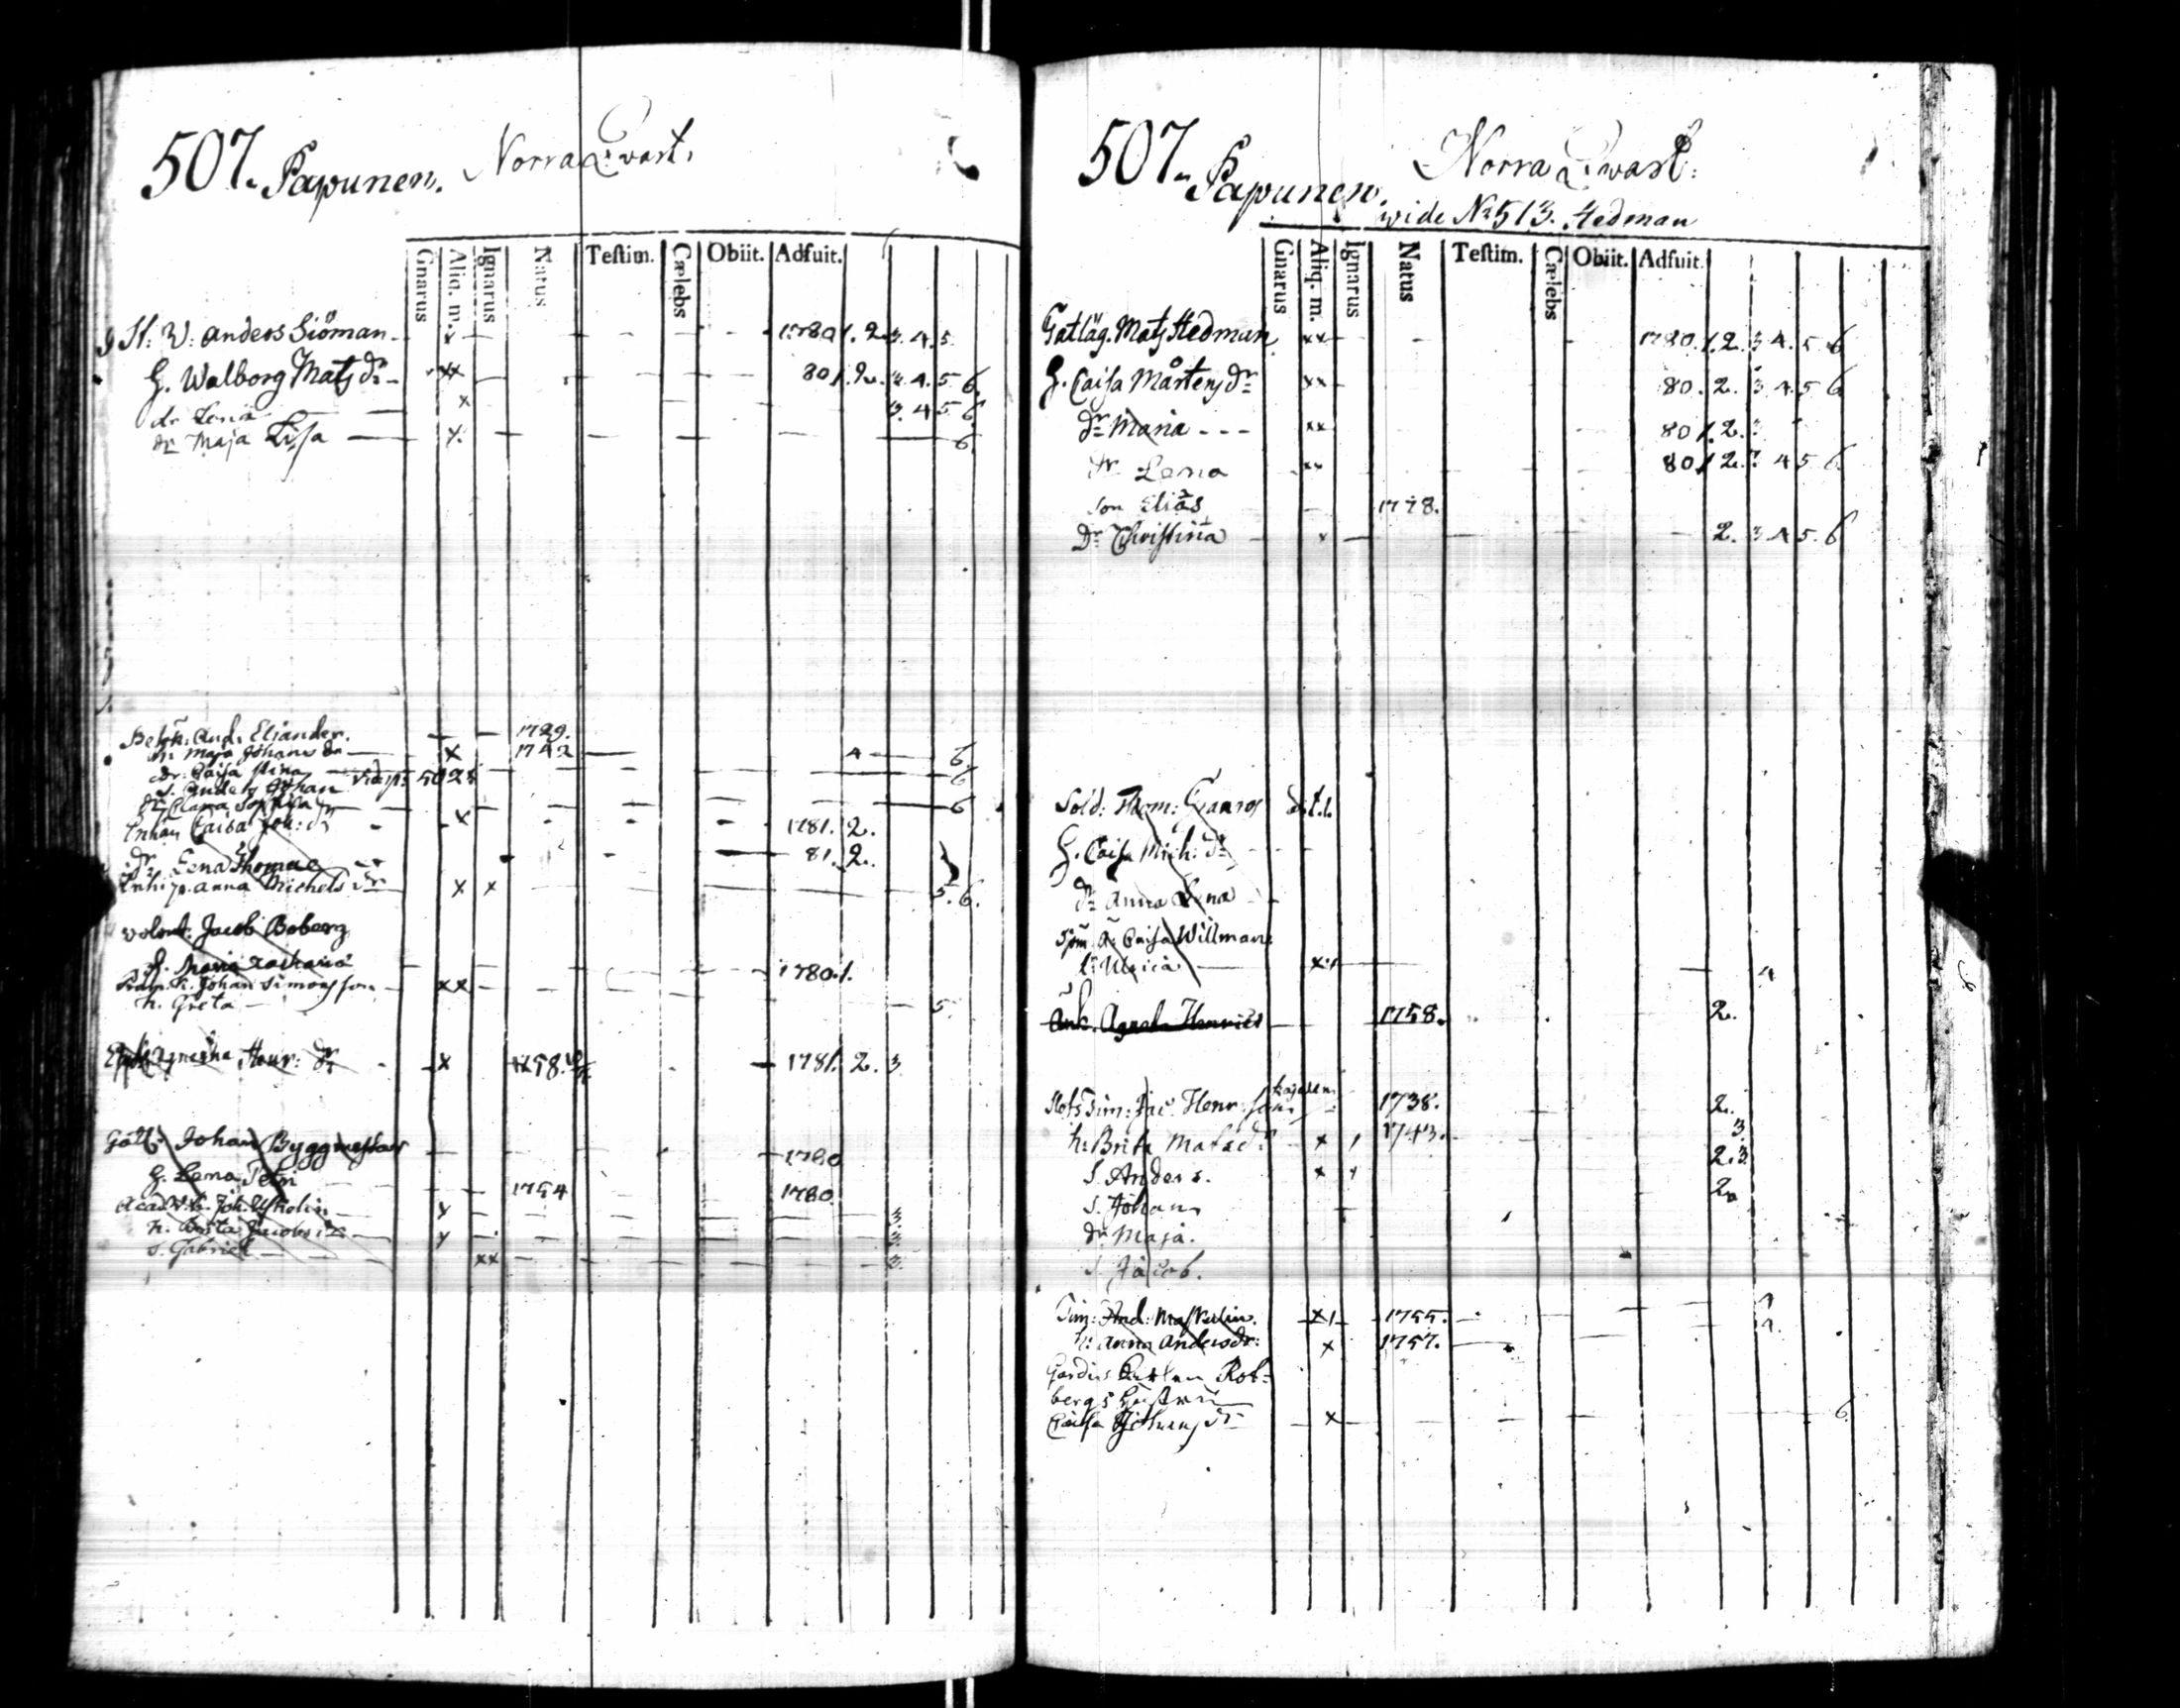 507. Papunen. Norra Qvart.
Gnarus Aliq. m. Ignarus Natus Testim. Cælebs Obiit. Adfuit.
H: W: Anders Siöman - x 1780 1. 2. 3. 4. 5.
H. Walborg Mats dr xx 80 1. 2. 3. 4. 5 6.
dr Lena x 3. 4 5 6
dr Maja Lisa x 6
And. Eliander. 1729.
h: Maja Johans dr x 1742 4 6.
dr. Caisa Stina 6
s. Anders Johan vid p: 502
dr Clara Sophia 6
Enkan Caisa Joh: dr x 1781. 2.
dr Lena Thomae 81. 2.
Inhip. Anna Michels dr x x 5. 6.
Volont. Jacob Boberg
H. Maria Zachariæ 1780. 1.
K. Johan Simonsson xx
h. Greta 5.
Agnetha Henr: dr x 1758. 1781. 2. 3
Johan Byggmestar 1780
H. Lena Petri 1754 1780.
Joh. x 3
h. Brita Jacobs dr x 3
s. Gabriel xx 3
507. Papunen. Norra Qvart:
wide No 513. Hedman
Gnarus Aliq. m. Ignarus Natus Testim. Cælebs Obiit. Adfuit.
Gatläg. Mats Hedman xx 1780. 1. 2. 3 4. 5 6
H. Caisa Mårtens dr xx 80. 2. 3 4 5 6
dr Maria - - - xx 80 1. 2. 3
dr Lena xx 80 1 2. 3 4 5 6
son Elias 1778.
Dr Christina x 2. 3 4 5. 6
Sold: Thom: Granros
H. Caisa Mich: dr
dr Anna Lena
Caisa Willman
Ulrica x 4
Enk. Agneta Henrics 1758. 2.
Tim: Jac: Henr: son 1738. 2.
h: Brita Mats dr x 1743. 3
s. Anders. x 2. 3
s. Johan 2
dr Maja.
s. Jacob.
Tim: And: Maskulin. x 1755. 4
h: Anna Anders dr: x 1757. 4
Rot-
bergs Hustru
Caisa Johans dr x 6